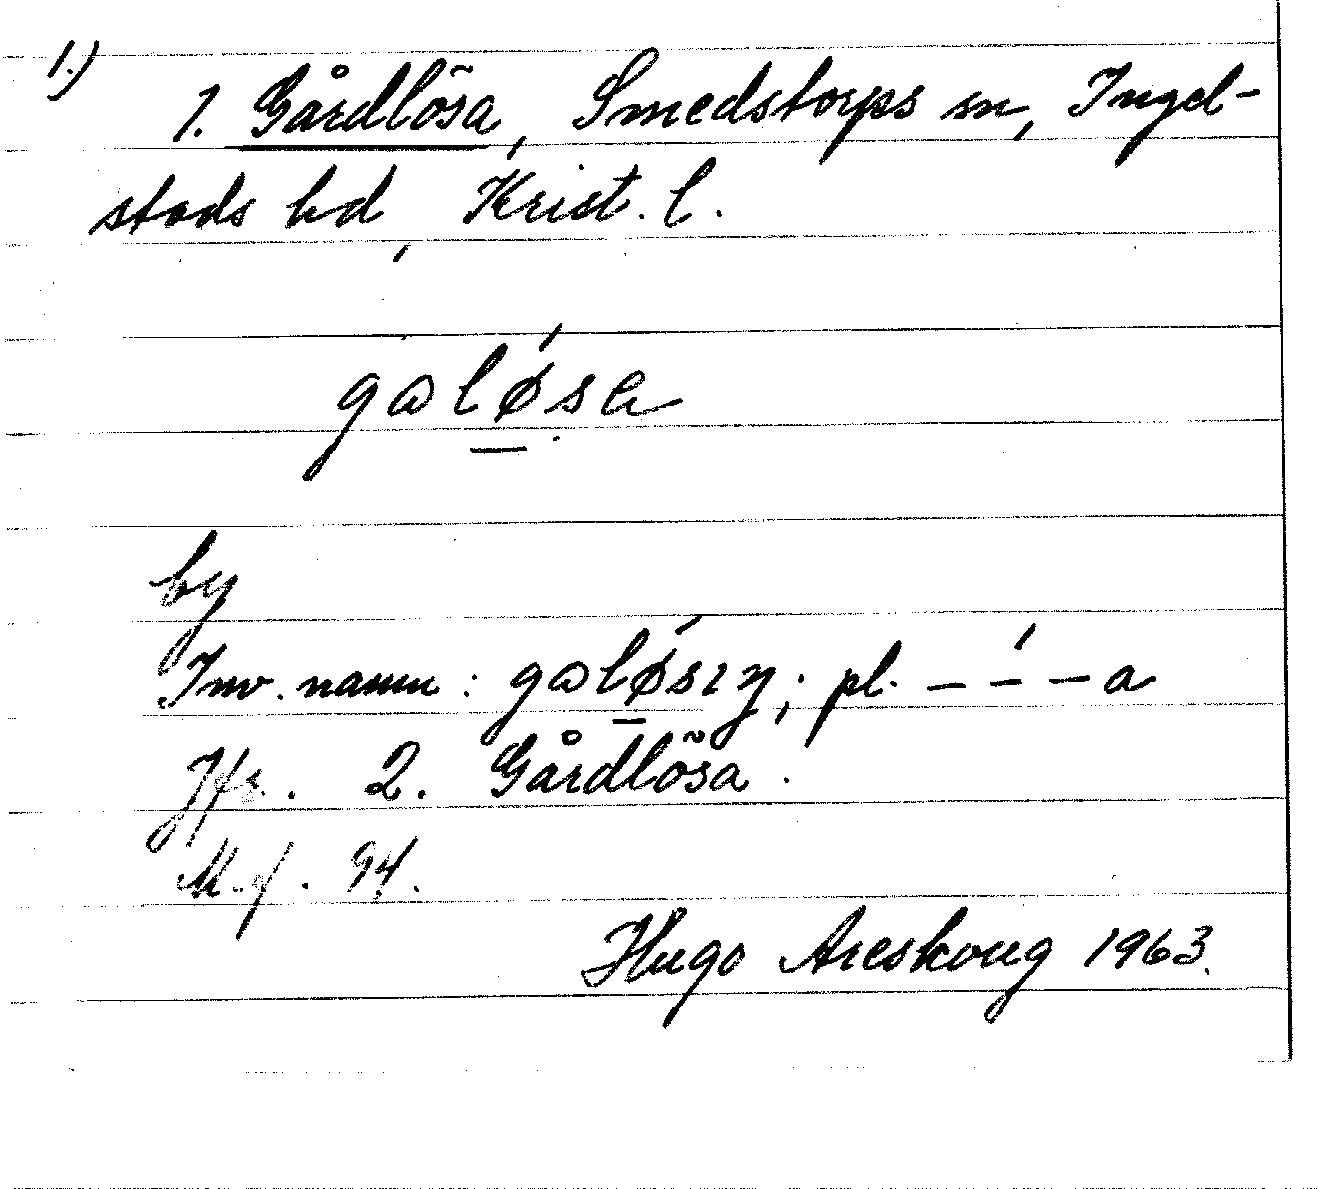 1.)
1. Gårdlösa, Smedstorps sn, Ingel-
stads hd, Krist. l.
galǿsa
by
Inv. namn: galǿsıŋ; pl. – –́ – a
Jfr. 2. Gårdlösa.
M.f. 94.
Hugo Areskoug 1963.